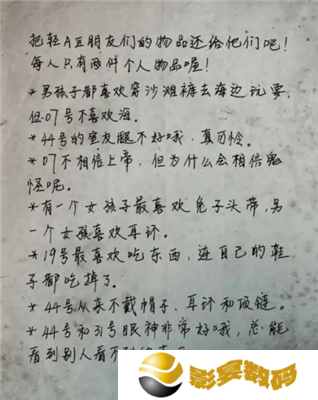 把轻A区朋友们的物品还给他们吧!
每人只有两件个人物品喔!
*男孩子都喜欢穿沙滩裤去海边玩耍,
但07号不喜欢海。
*44号的室友腿不好哦,真可怜。
*07不相信上帝,但为什么会相信鬼
怪呢。
*有一个女孩子最喜欢兔子头带,另
一个女孩喜欢耳环。
*19号最喜欢吃东西,连自己的鞋
子都吃掉了。
*44号从来不戴帽子、耳环和项链。
*44号和31号眼神非常好哦,总能
看到别人看不到的东西
彩宴数码